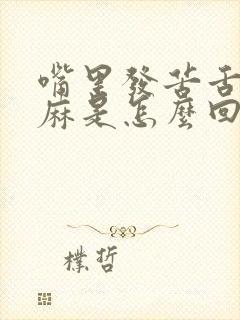 嘴里發苦舌
麻是怎麼回
樸哲